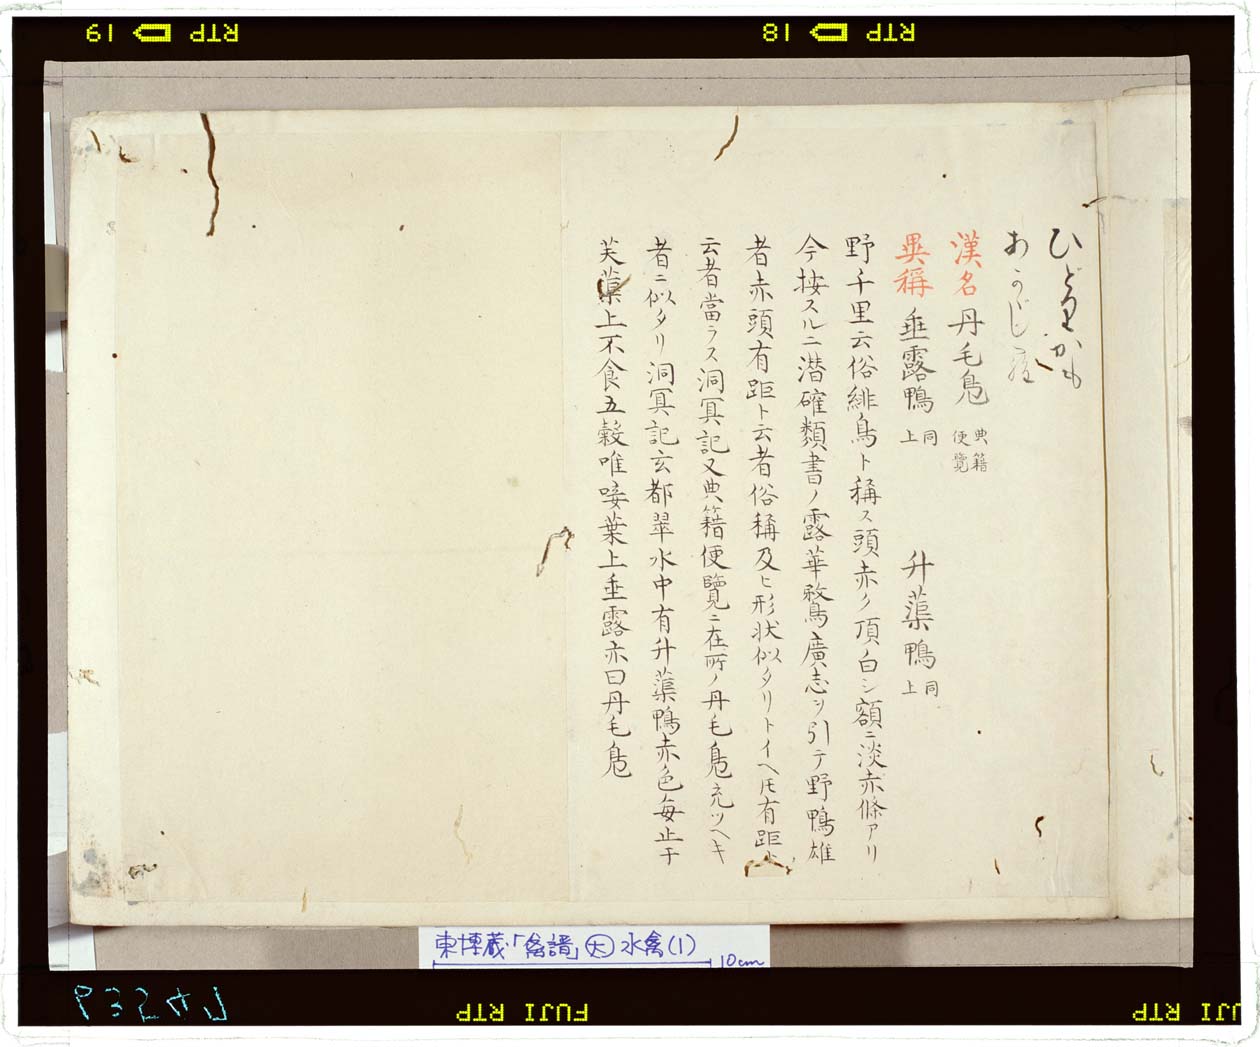 ひどりかも
あかがしら
漢名 丹毛鳬 典籍便覧
異稱 垂露鴨 同上 升蕖鴨 同上
野千里云俗緋鳥ト稱ス頭赤ク頂白シ額ニ淡赤條アリ
今按スルニ潜確類書ノ露華鶩廣志ヲ引テ野鴨雄
者赤頭有距ト云者俗稱及ヒ形状似タリトイヘ𪜈有距ト
云者當ラス洞冥記又典籍便覽ニ在所ノ丹毛鳬充ツヘキ
者ニ似タリ洞冥記玄都翠水中有升蕖鴨赤色每止于
芙蕖上不食五穀唯唼葉上垂露亦曰丹毛鳬
東博蔵「禽譜」大 水禽(1)
10cm
RTP 18
RTP 19
FUJI RTP
FUJI RTP